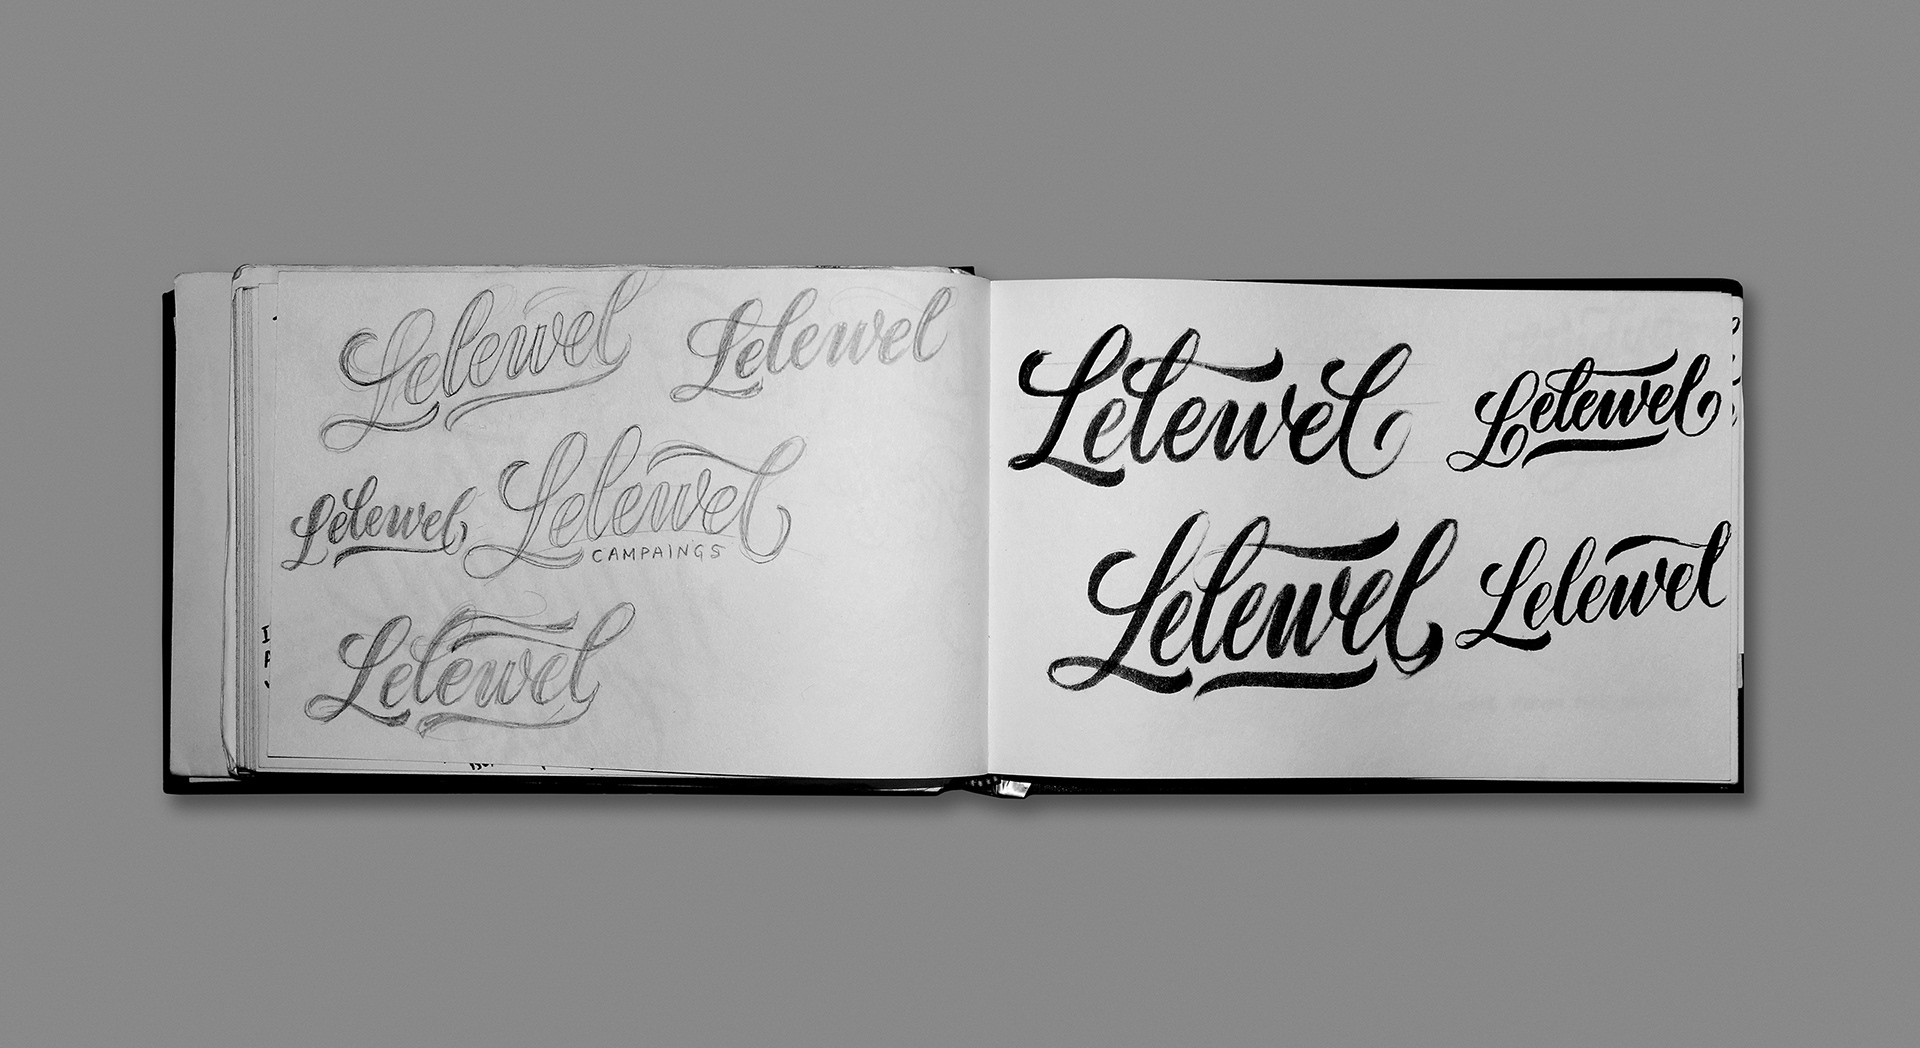 Lelewel
Lelewel
Lelewel
Lelewel
CAMPAINGS
Lelewel
Lelewel
Lelewel
Lelewel
Lelewel